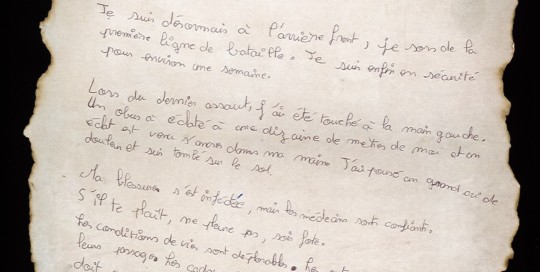 Je suis désormais à l'arrière front, je sors de la
première ligne de bataille. Je suis enfin en sécurité
pour environ une semaine.
Lors du dernier assaut, j'ai été touché à la main gauche.
Un obus à éclaté à une dizaine de mètres de moi et un
éclat est venu s'ancrer dans ma main. J'ai poussé un grand cri de
douleur et suis tombé sur le sol.
Ma blessure s'est infectée, mais les médecins sont confiants.
S'il te plaît, ne pleure pas, sois forte.
Les conditions de vie sont déplorables. Les
leurs passages. Les
doit